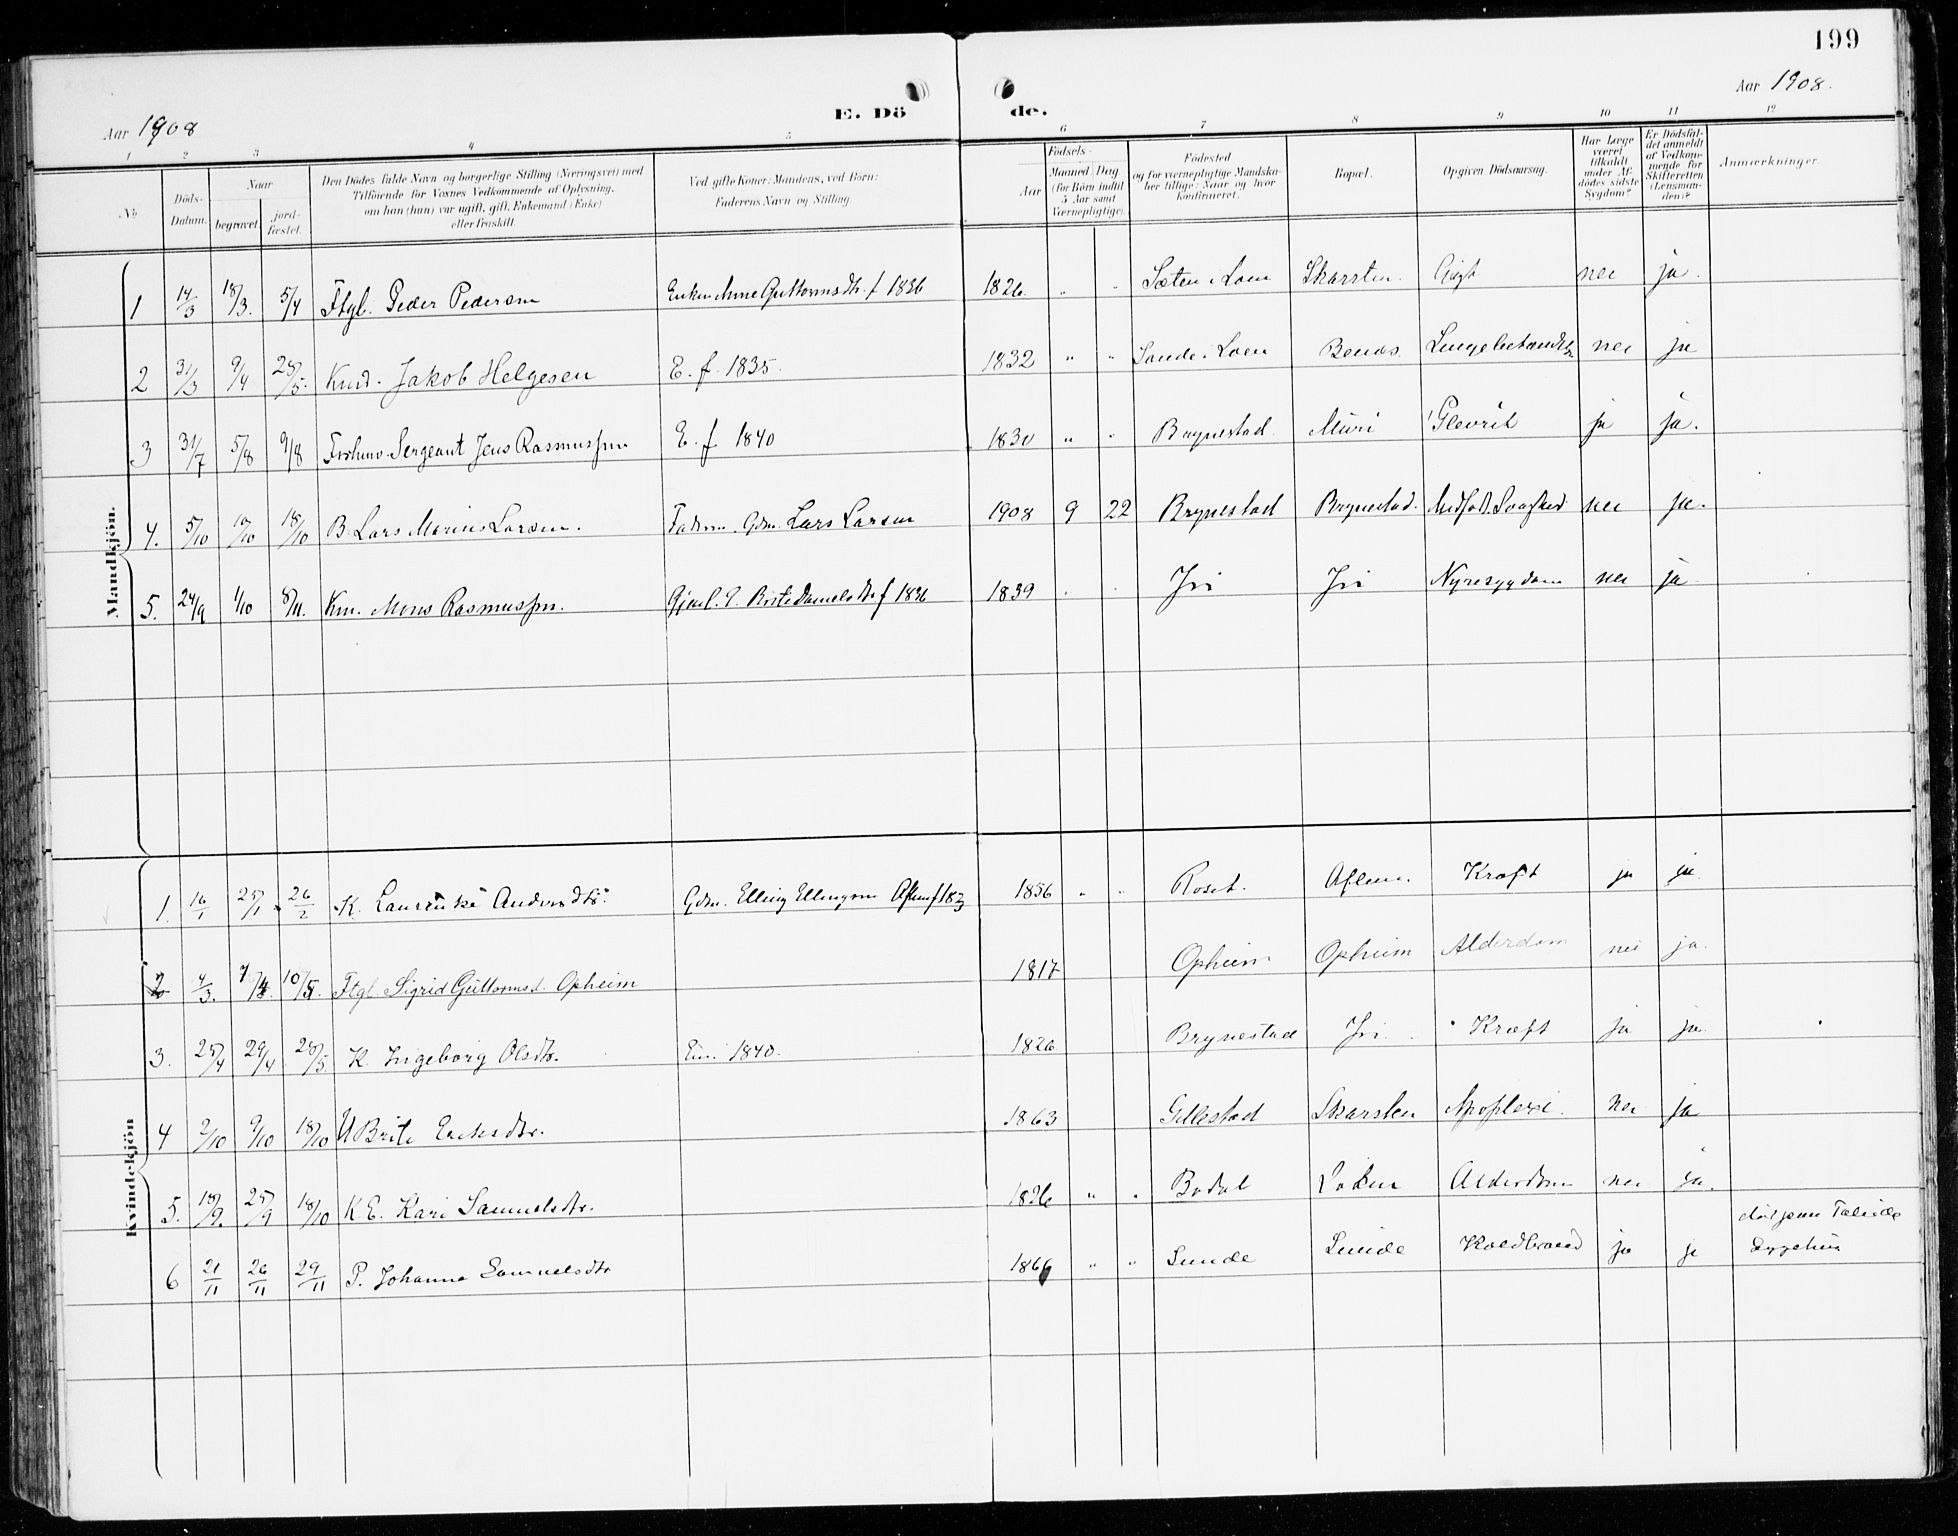 199
Aar 1908
E. Dö
de.
Aar 1908.
1 2 3 4 5 6 7 8 9 10 11 12
No
Döds-Datum.
Naar
begravet.
jord-fæstet.
Den Dödes fulde Navn og borgerlige Stilling (Næringsvei) med
Tilföiende for Voxnes Vedkommende af Oplysning,
om han (hun) var ugift, gift, Enkemand (Enke)
eller fraskilt.
Ved gifte Koner: Mandens, ved Börn:
Faderens Navn og Stilling.
Aar
Födsels-
Maaned Dag
(for Börn indtil
5 Aar samt
Værnepligtige).
Födested
og for værnepligtige Mandska-
ber tillige: Naar og hvor
konfirmeret.
Bopæl.
Opgiven Dödsaarsag.
Har Læge
været
tilkaldt
under Af-
dödes sidste
Sygdom?
Er Dödsfal-
det anmeldt
af Vedkom-
mende for
Skifteretten
(Lensman-
den)?
Anmærkninger.
Mandkjön.
1 14/3 18/3. 5/4 Ftgl. Peder Pedersen Enkem Anne Guttormsdtr. f 1836 1826. " " Sæten i Loen Skarsten. Gigt nei ja.
2 31/3 9/4 28/5. Kmd. Jakob Helgesen E. f. 1835. 1832 " " Sande i Loen Benås nei ja
3 31/7 5/8 9/8 Sergeant Jens Rasmussen E. f 1840 1830 " " Brynestad Muri Plevrit ja ja.
4. 5/10 10/10 18/10 B. Lars Marius Larsen. Faderen. Gdm. Lars Larsen 1908 9 22 Brynestad Brynestad. Medfød. Svaghed nei ja.
5. 24/9 1/10 8/11. Km. Mons Rasmussen. Brite Danielsdtr f 1836 1839 . . Jri Jri Nyresygdom nei ja
Kvindekjön
1. 16/1 25/1 26/2 K. Laurenske Andersdtr. Gdm. Elling Ellingsen Aflem f 1823 1856 " " Roset. Aflem. Kræft ja ja.
2 4/3. 7/4 10/5. Ftgl. Sigrid Guttormsd. Opheim 1817 Opheim Opheim Alderdom nei ja.
3. 25/4 29/4 28/5. K. Ingeborg Olsdtr. Em. 1840. 1826 Brynestad Jri. Kræft ja ja.
4 2/10 9/10 18/10 U Brite Eriksdtr. 1863 Gillestad Skarsten Apoplexi. nei ja
5. 18/9. 25/9 18/10 K. E. Kari Samuelsdtr. 1826 " " Bødal Loen Alderdom nei ja.
6 21/11 26/11 29/11 P. Johanne Samuelsdtr 1866 " " Sunde Sunde Koldbrand ja ja